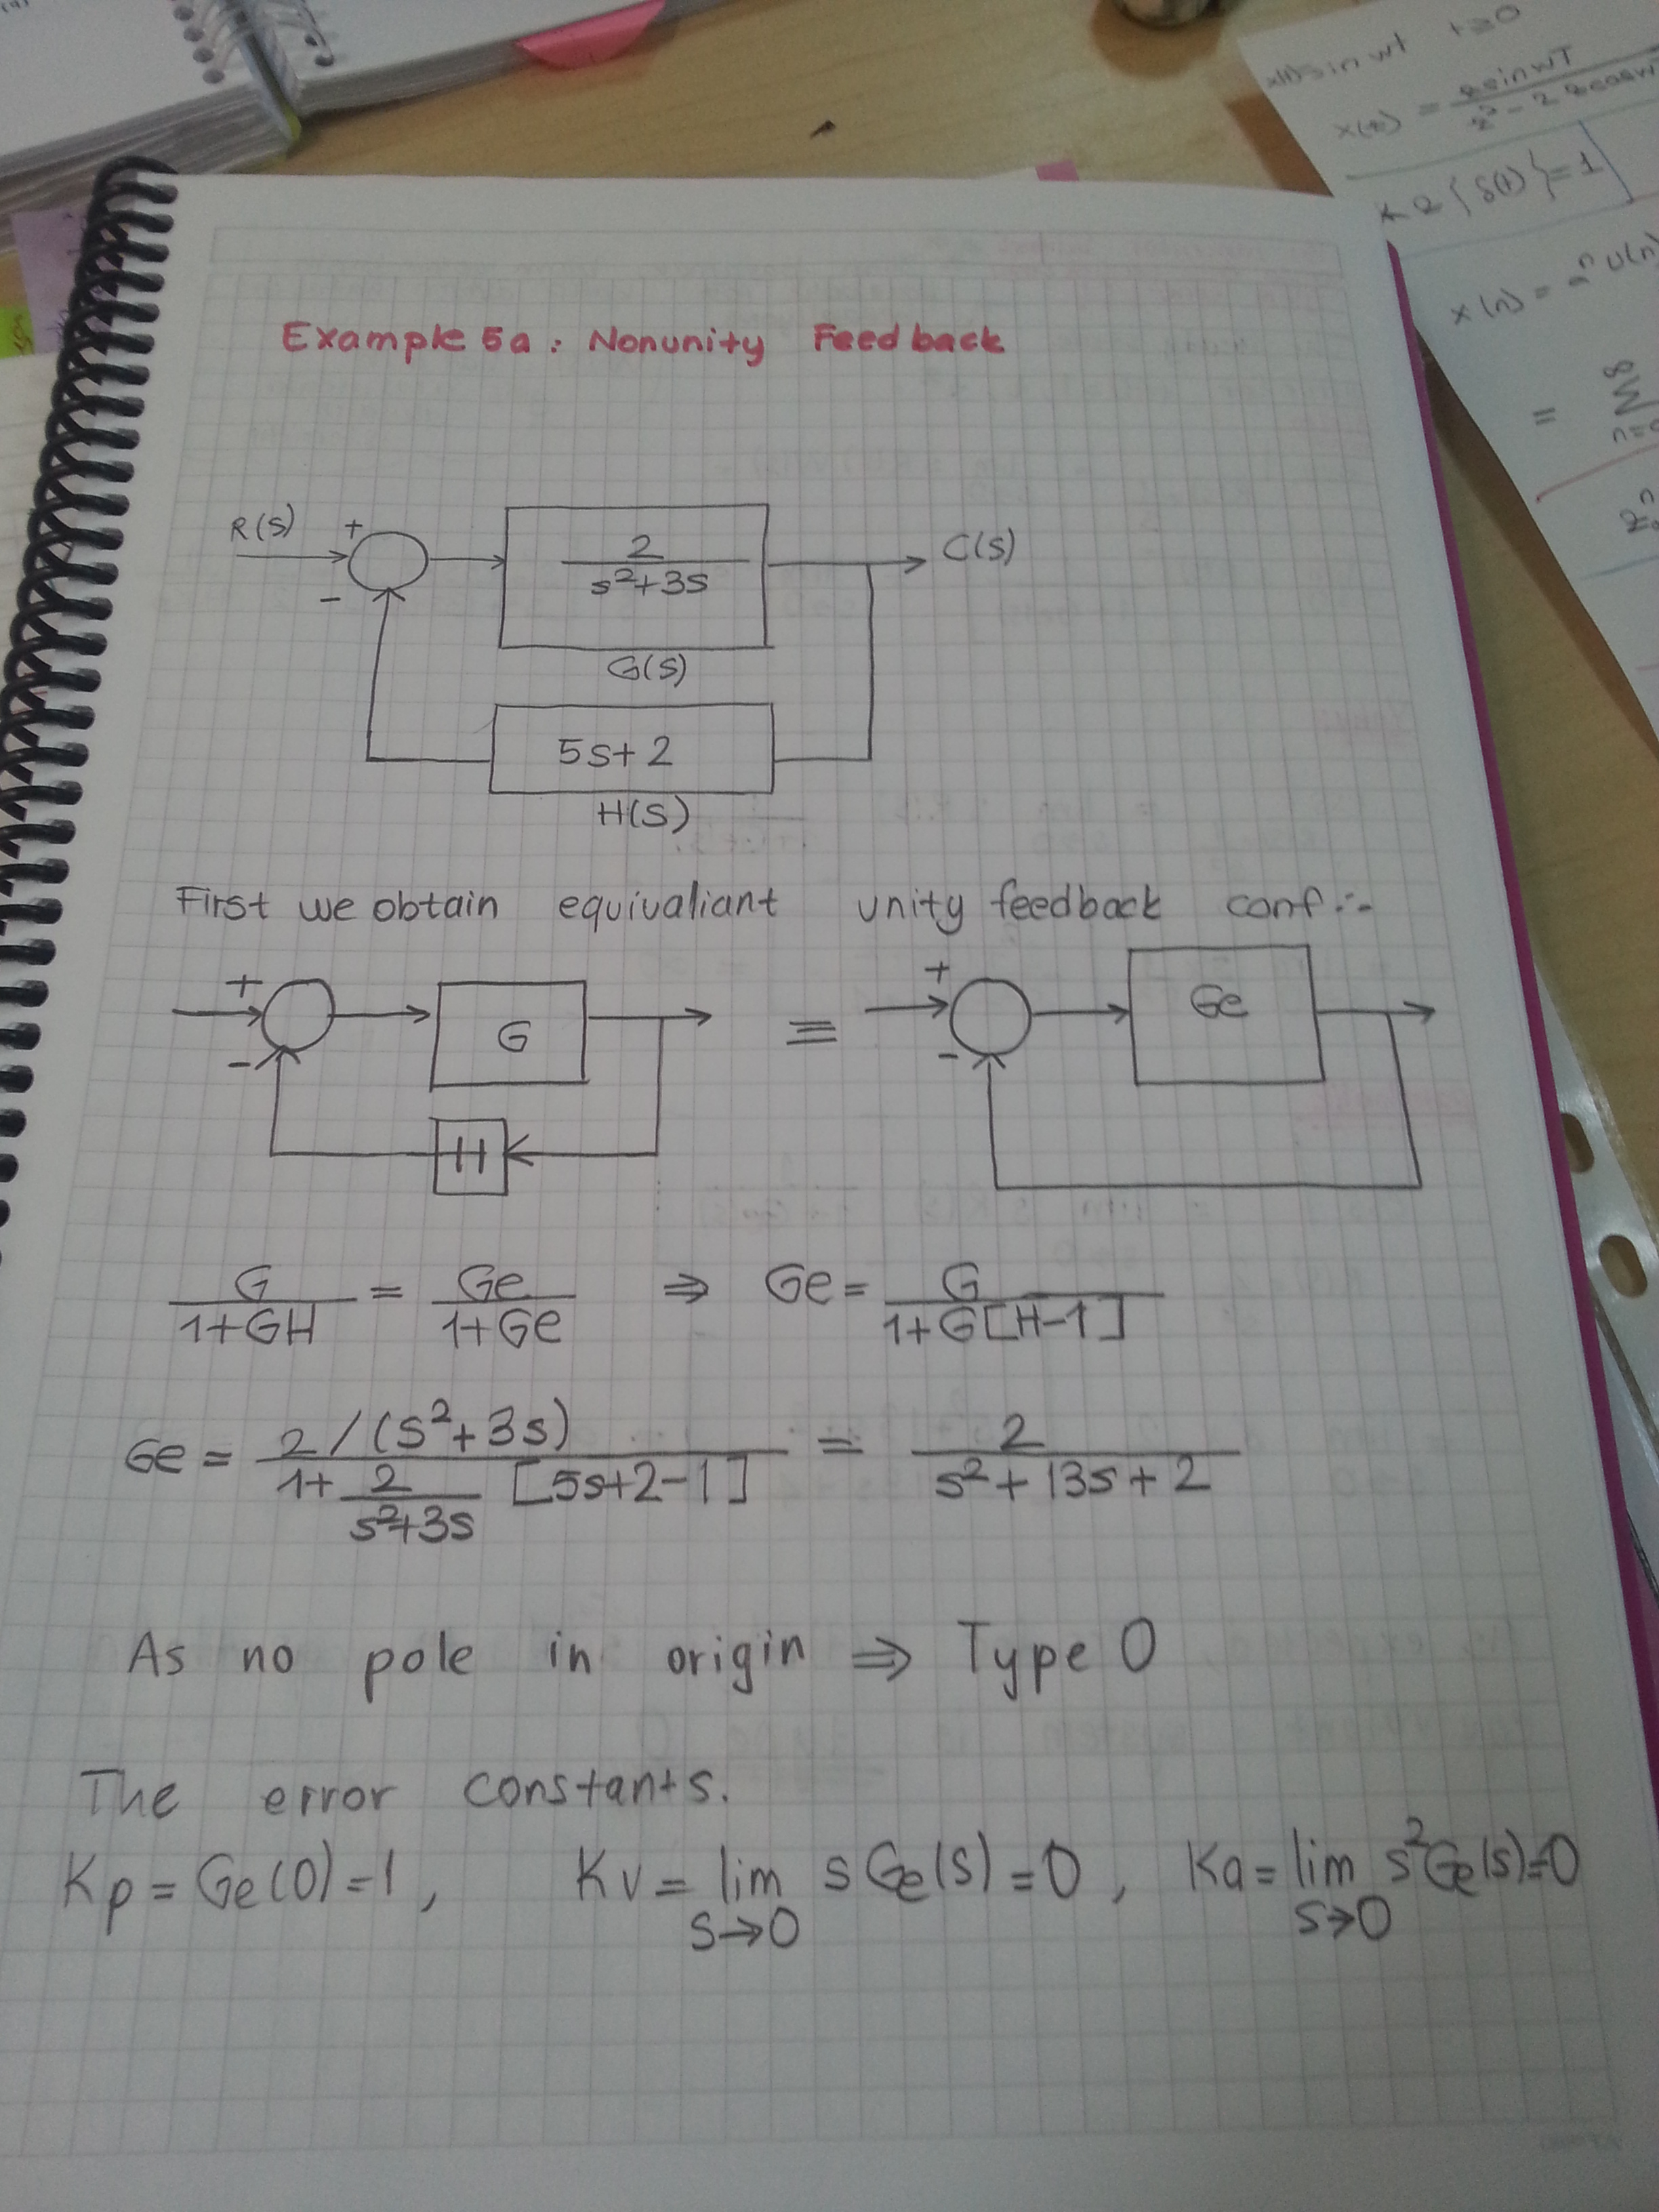 Example 5a : Nonunity Feedback
R(s) + - 2/(s²+3s) C(s)
G(s)
5s+2
H(s)
First we obtain equivaliant unity feedback conf :-
+ - G H ≡ + - Ge
G/(1+GH) = Ge/(1+Ge) ⇒ Ge = G/(1+G[H-1])
Ge = (2/(s²+3s))/(1+ 2/(s²+3s) [5s+2-1]) = 2/(s²+13s+2)
As no pole in origin ⇒ Type 0
The error constants.
Kp = Ge(0)=1, Kv = lim s→0 sGe(s)=0, Ka = lim s→0 s²Ge(s)=0
t≥0
z{δ(t)}=1
x(n) =
=